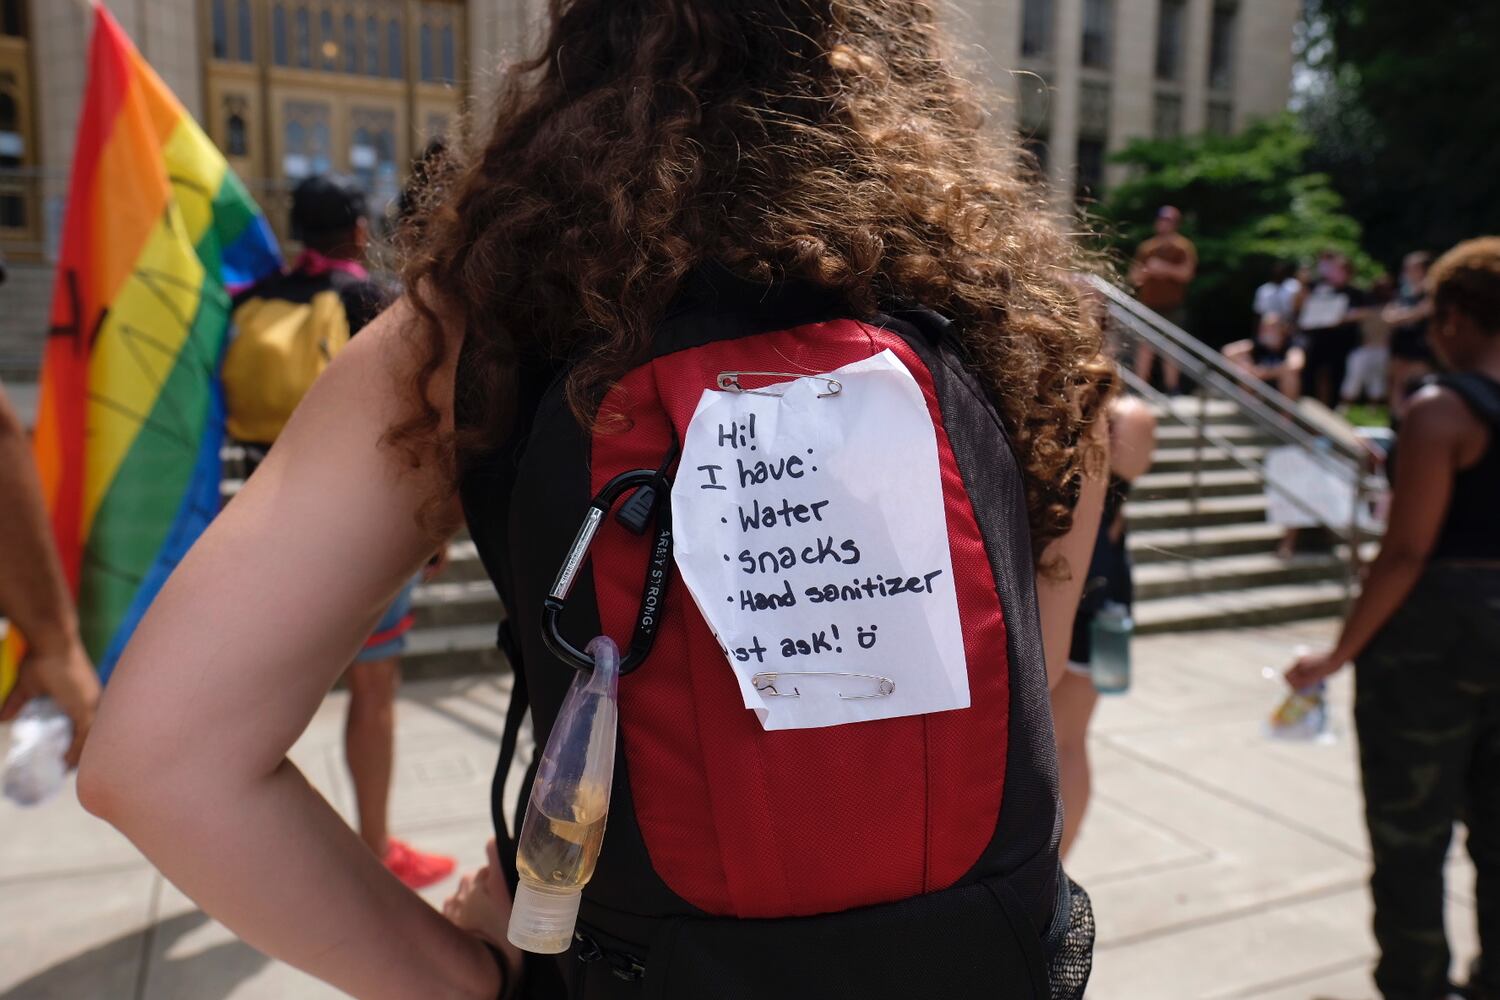 Hi!
I have:
· Water
· snacks
· Hand sanitizer
ask!
ARMY STRONG.